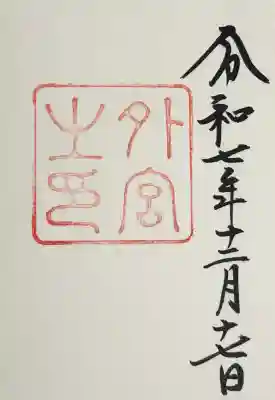 令和七年十二月十七日
外宮之印